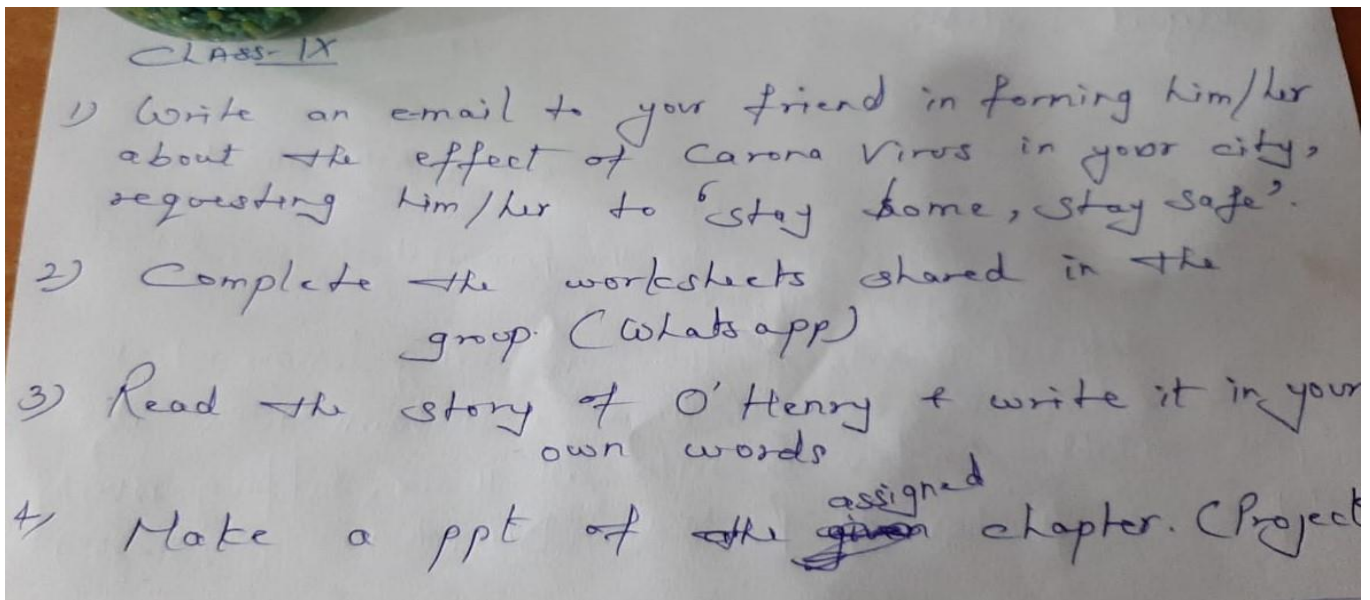 CLASS-IX
1) Write an e-mail to your friend in forming him/her
about the effect of Carona Virus in your city,
requesting him/her to 'stay home, stay safe'.
2) Complete the worksheets shared in the
group. (Whatsapp)
3) Read the story of O'Henry & write it in your
own words
4) Make a ppt of the assigned chapter. (Project